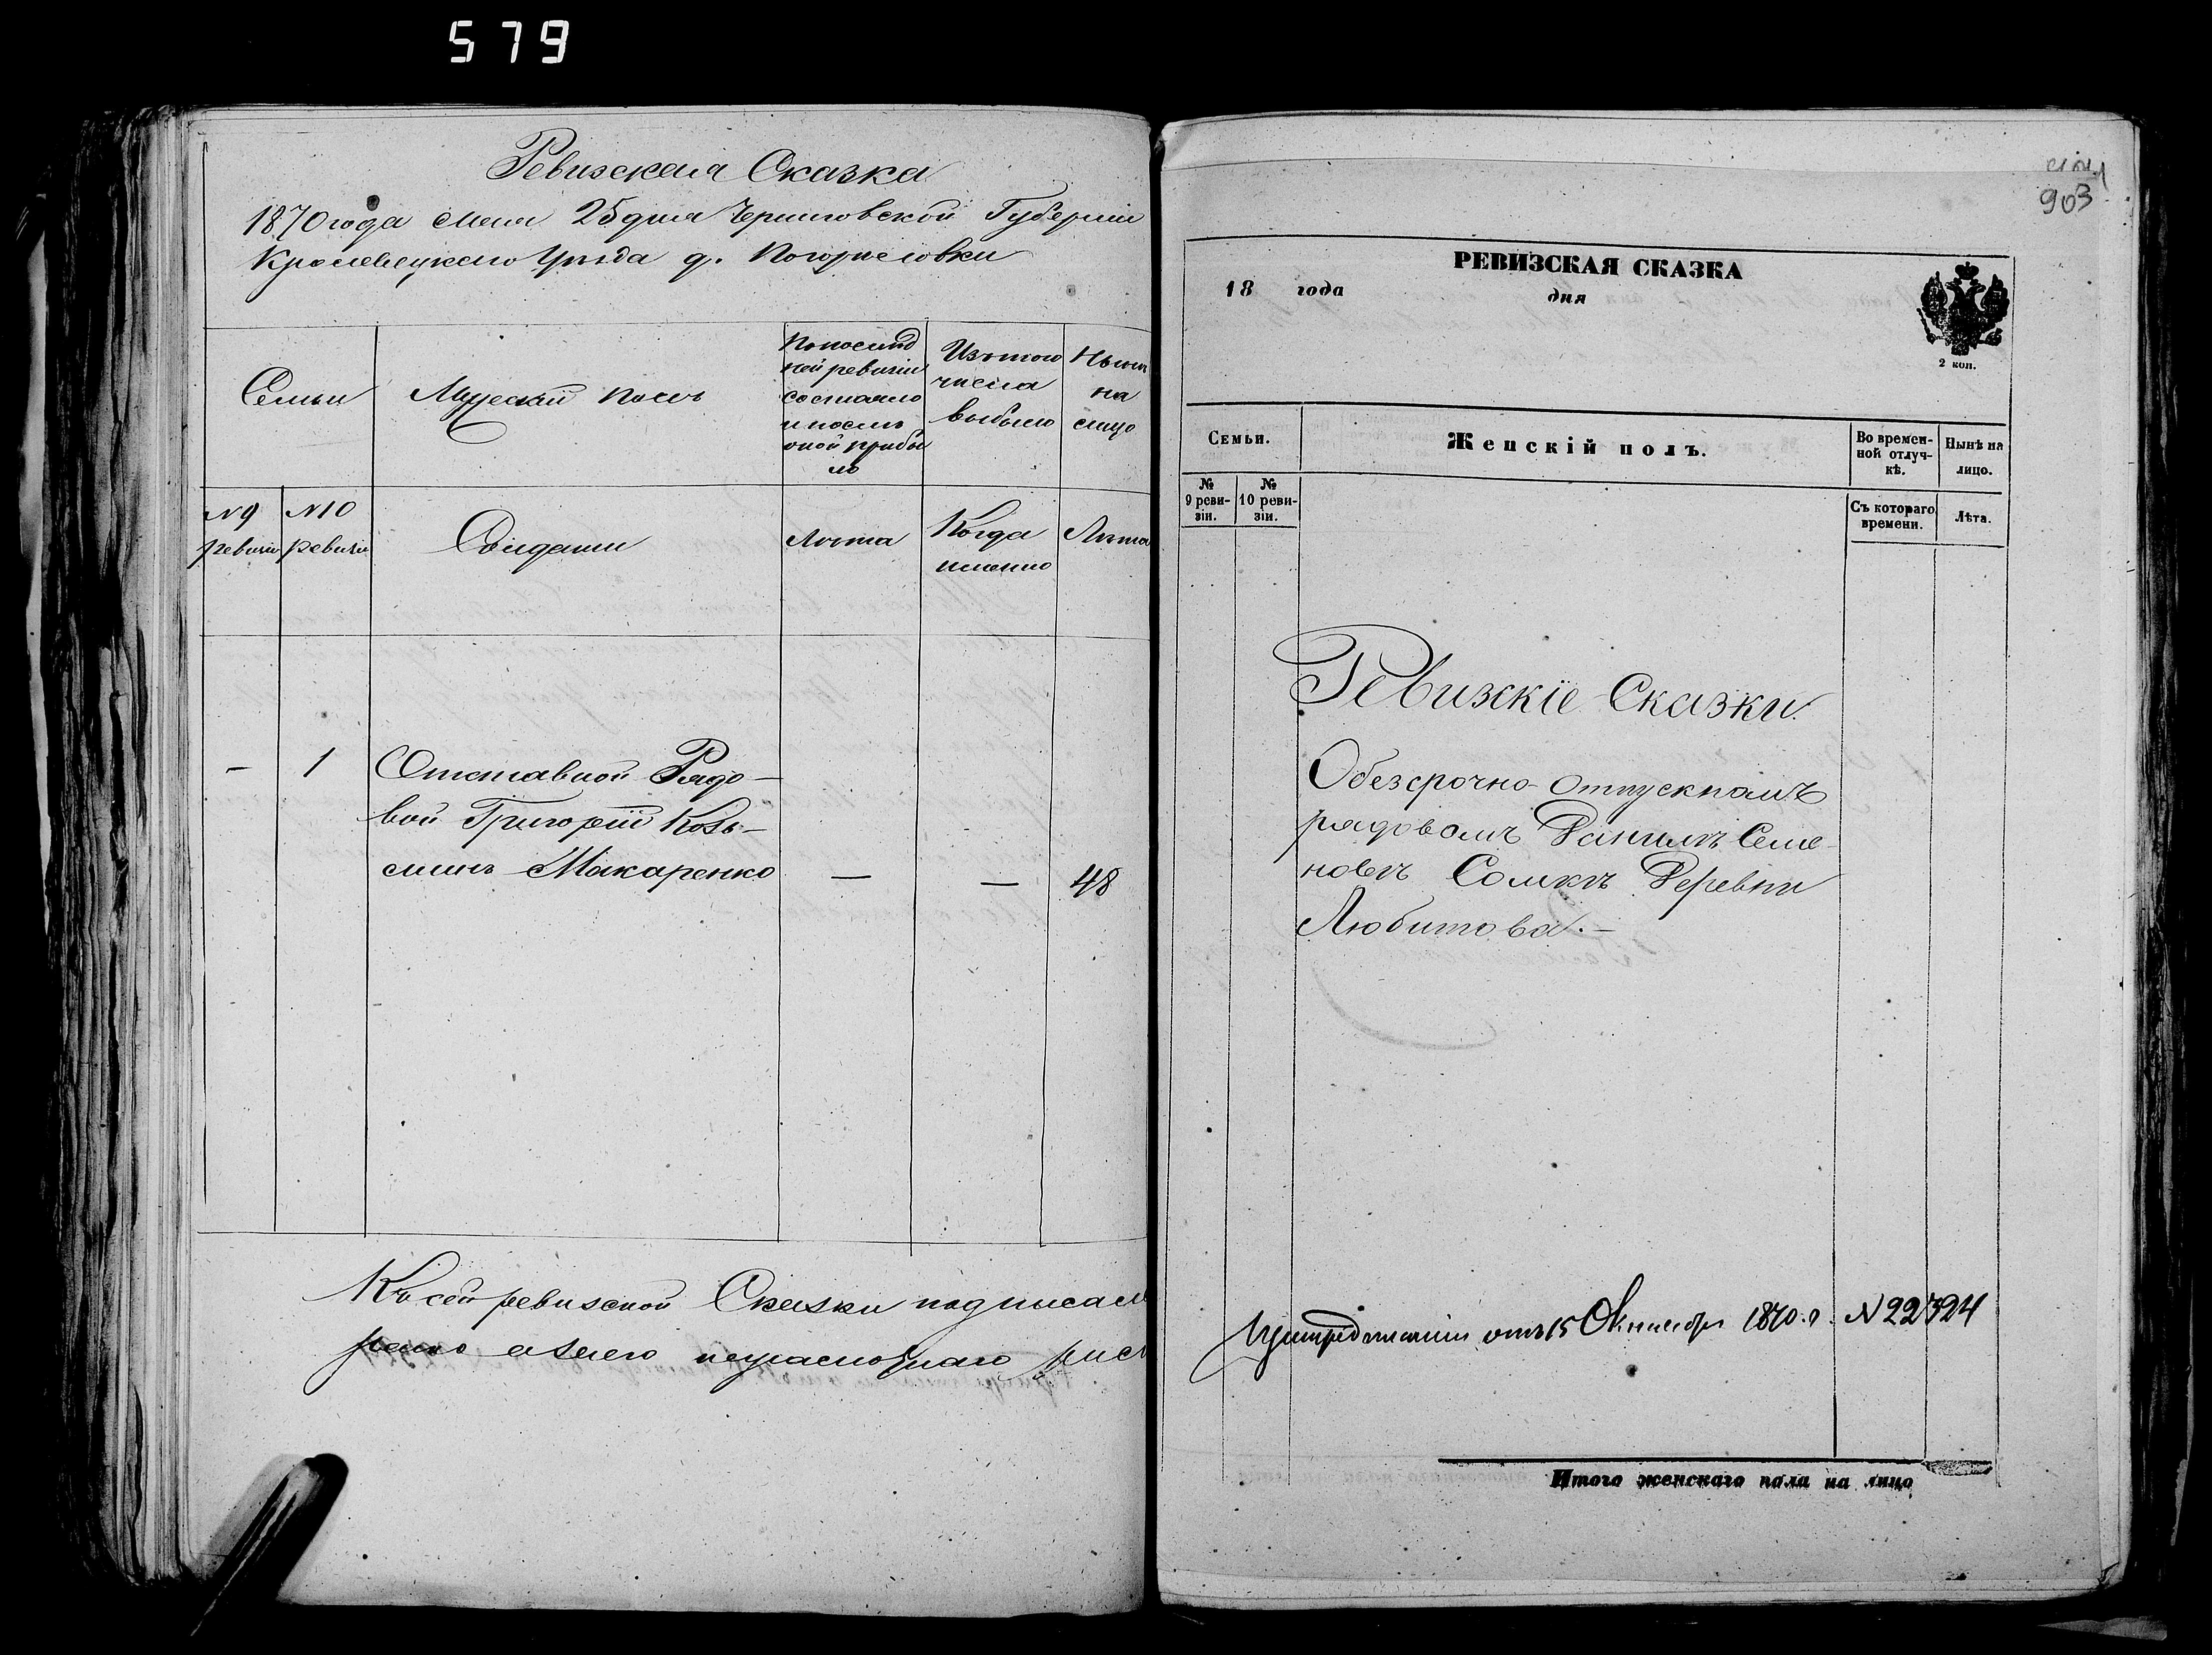 579
Ревизская Сказка
1870 года Мая 25 дня Черниговской Губернии
Кролевецкаго Уѣзда д. Погорѣловки
Семьи
Мужескій полъ
По послѣд
ней ревизіи
состояло
и послѣ
оной прибы
ло
Изъ того
числа
выбыло
Нынѣ
на
лицо
№ 9
ревизіи
№ 10
ревизіи
Лѣта
Когда
именно
Лѣта
— 1 Отставной Рядо—
вой Григорій Козь—
минъ Макаренко — — 48
Къ сей ревизской Сказки подписал
903
РЕВИЗСКАЯ СКАЗКА
18 года дня
2 коп.
Семьи.
Женскій полъ.
Во времен-
ной отлуч-
кѣ.
Нынѣ на
лицо.
№
9 реви-
зіи.
№
10 реви-
зіи.
Съ котораго
времени.
Лѣта.
Ревизскіе Сказки
О безсрочно-отпускномъ
рядовомъ Данилѣ Семе-
новѣ Сомкѣ Деревни
Любитова.—
отъ 15 Октября 1870 г. № 22324
Итого женскаго пола на лицо